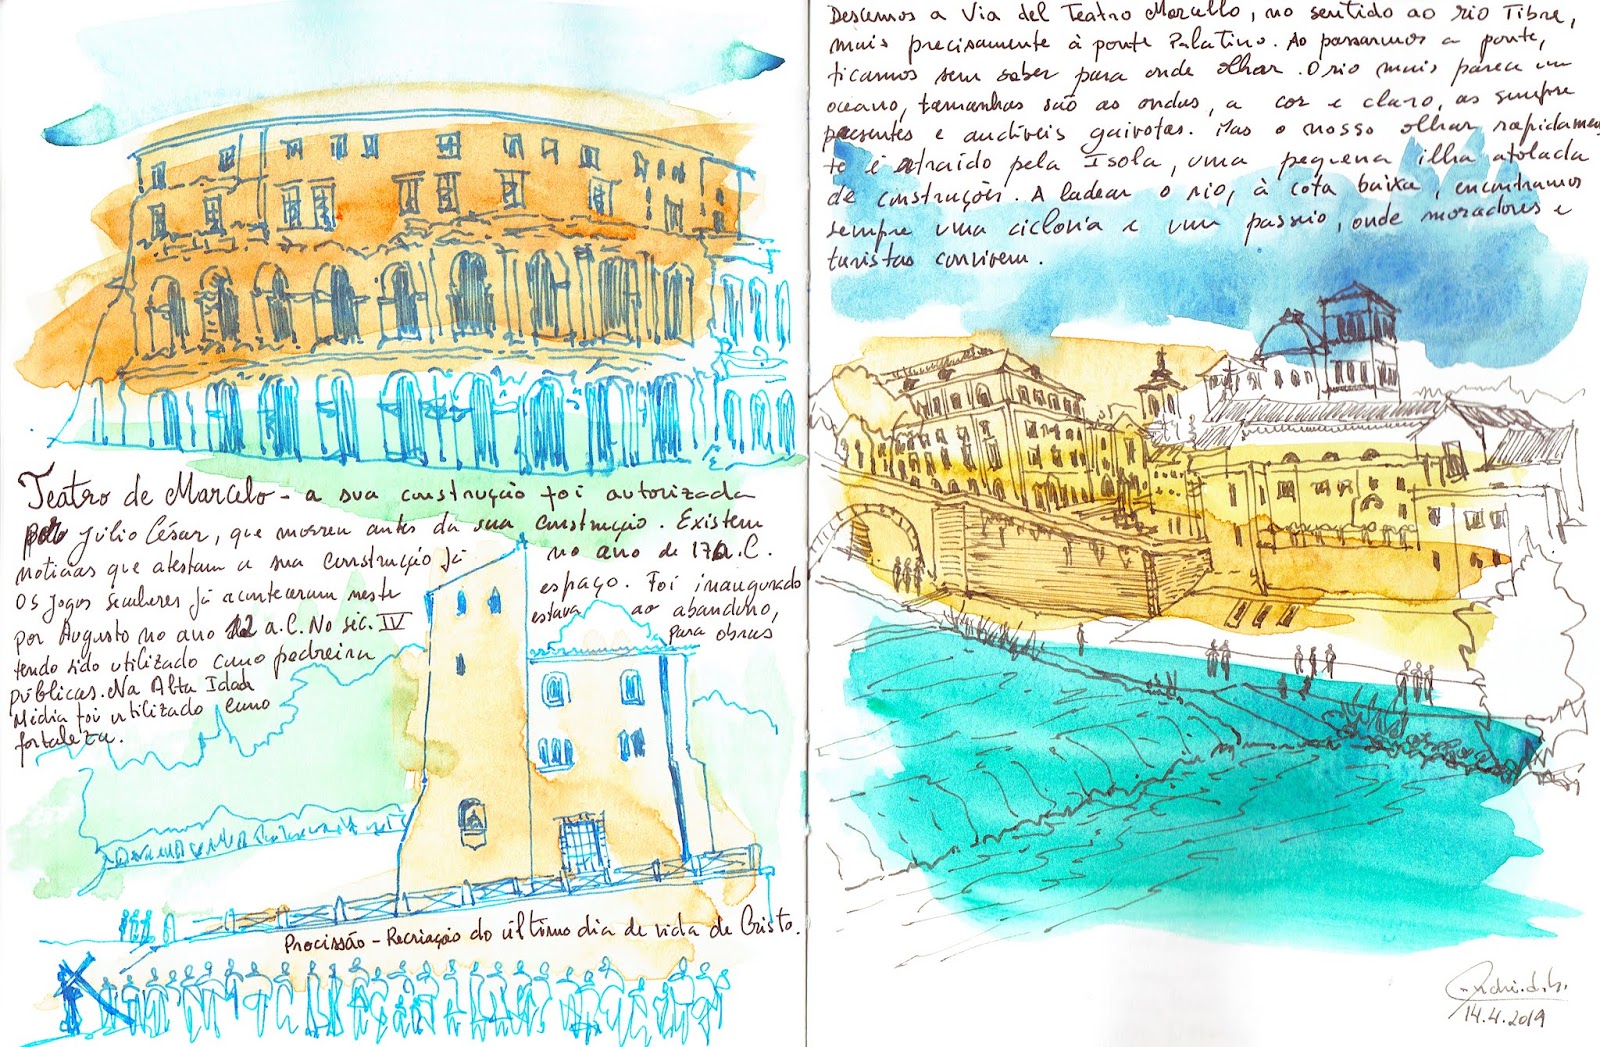 Teatro de Marcelo - a sua construção foi autorizada
por Júlio César, que morreu antes da sua construção. Existem
noticias que atestam a sua construção já no ano de 17 a.C.
Os jogos seculares já aconteceram neste espaço. Foi inaugurado
por Augusto no ano 12 a.C. No séc. IV estava ao abandono,
tendo sido utilizado como pedreira para obras
públicas. Na Alta Idade
Média foi utilizado como
fortaleza.
Procissão - Recriação do último dia de vida de Cristo.
Descemos a Via del Teatro Marcello, no sentido ao rio Tibre,
mais precisamente à ponte Palatino. Ao passarmos a ponte,
ficamos sem saber para onde olhar. O rio mais parece um
oceano, tamanhas são as ondas, a cor e claro, as sempre
presentes e audíveis gaivotas. Mas o nosso olhar rapidamen
te é atraído pela Isola, uma pequena ilha atolada
de construções. A ladear o rio, à cota baixa, encontramos
sempre uma ciclovia e um passeio, onde moradores e
turistas convivem.
14.4.2019